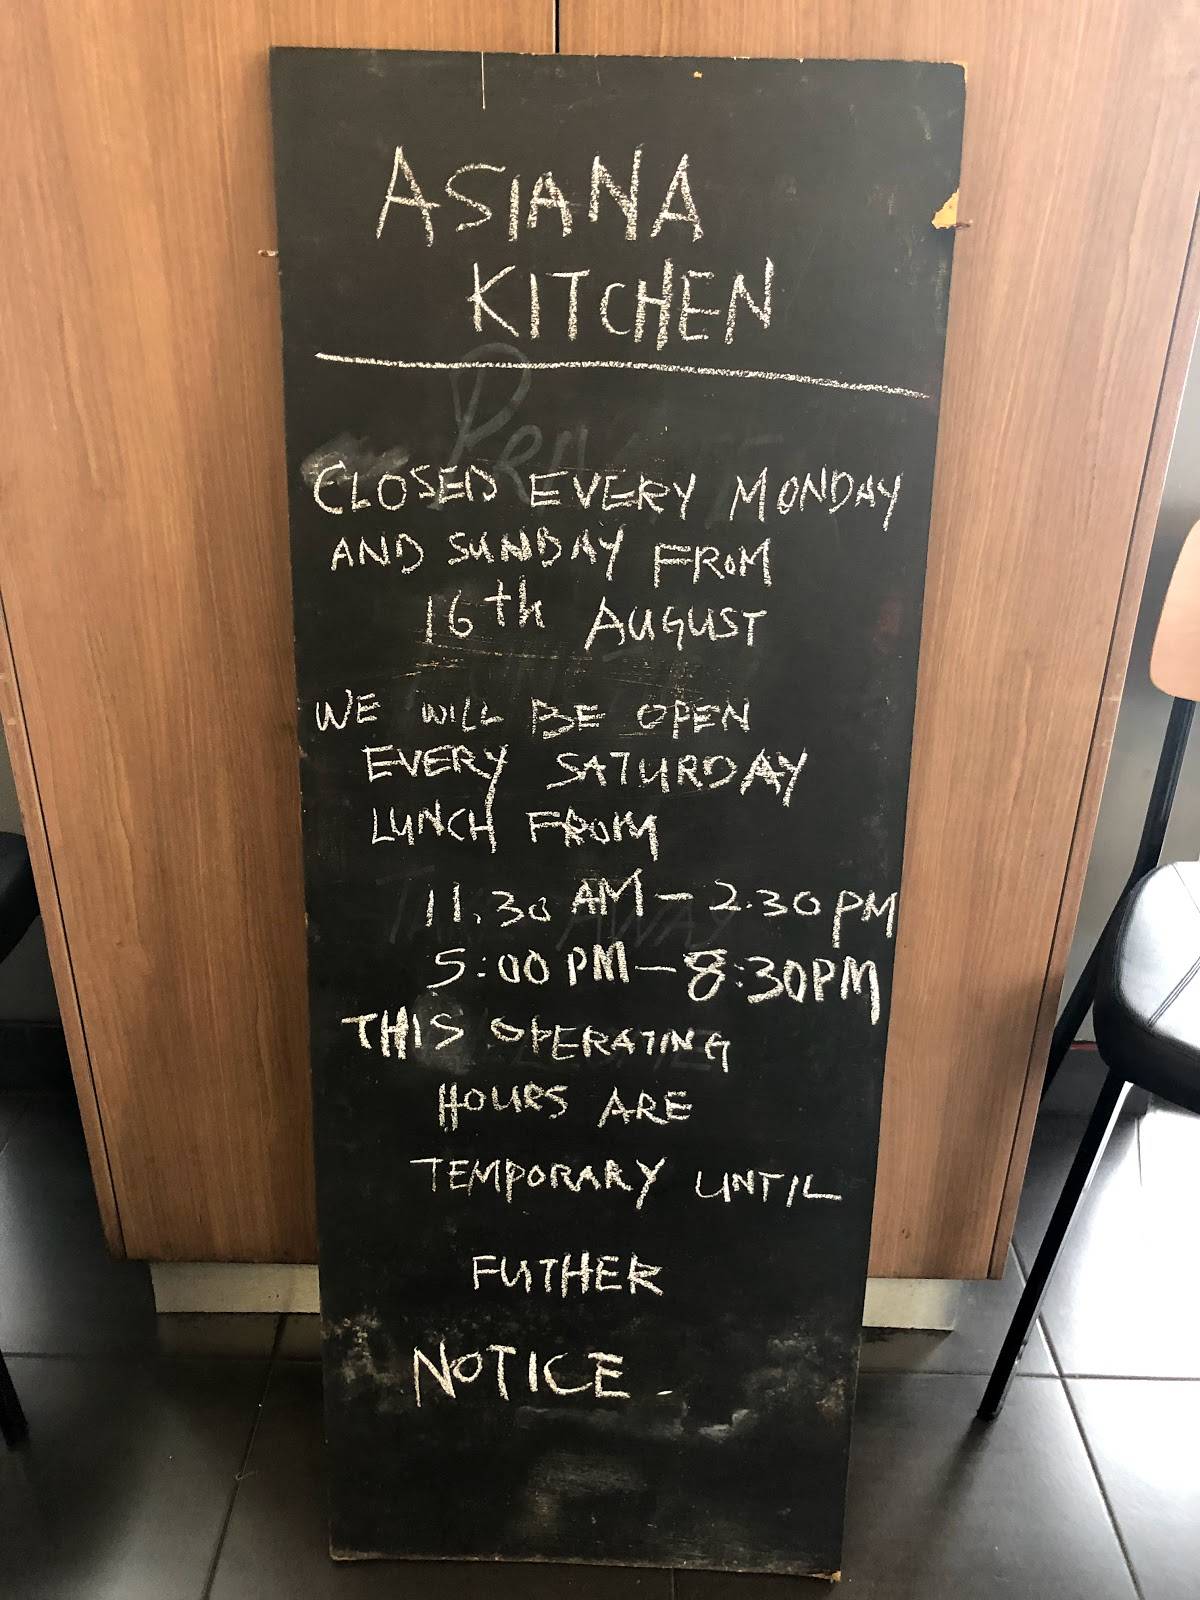 ASIANA
KITCHEN
CLOSED EVERY MONDAY
AND SUNDAY FROM
16th AUGUST
WE WILL BE OPEN
EVERY SATURDAY
LUNCH FROM
11.30 AM - 2.30 PM
5:00 PM - 8:30PM
THIS OPERATING
HOURS ARE
TEMPORARY UNTIL
FUTHER
NOTICE.